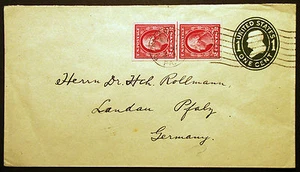 UNITED STATES
1 ONE CENT 1
Herrn Dr. Hch. Rollmann.
Landau Pfalz
Germany.